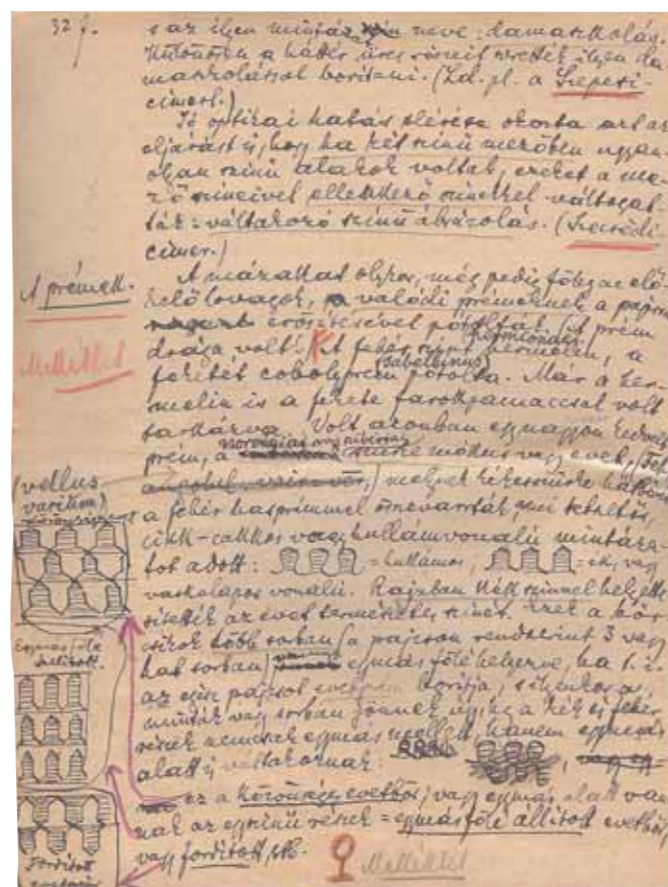 32 f.
s az ilyen mintázás neve: damaszkolás.
Különösen a háttér üres részeit szerették ilyen da-
maszkolással borítani. (Ld. pl. a Szepesi-
címert.)
Jó optikai hatás elérése okozta azt az
eljárást is, hogy ha két színű mezőben ugyan-
olyan színű alakok voltak, ezeket a me-
ző színeivel ellenkező színekkel váltogat-
ták: váltakozó színű ábrázolás. (
címer.)
A prémek.
A mázakat olykor, még pedig főleg az elő-
kelő lovagok, valódi prémeknek a pajzsra
erősítésével pótolták. (A prém
drága volt.) A fehér színt hermelin, a
Melléklet
(sabellinus)
feketét cobolyprém pótolta. Már a her-
melin is a fekete farokpamaccsal volt
tarkázva. Volt azonban egy nagyon kedvelt
prém, a norvégiai vagy szürke mókus vagy evet,
(vellus
varium)
melynek kékesszürke
a fehér hasprémmel összevarrták,
cikk-cakkos vagy hullámvonalú mintáza-
tot adott: = hullámos, = ék, vagy
vaskalapos vonalú. Rajzban kék színnel helyette-
sítették az evet természetes színét. Ezek a bőr-
csíkok több sorban (a pajzson rendszerint 3 vagy
hat sorban) egymás fölé helyezve,
az egész pajzsot borítja, s ilyenkor a
minták vagy sorban jönnek úgy, hogy a kék és fehér
részek nemcsak egymás mellett, hanem egymás
alatt is váltakoznak:
ez a közönséges evetbőr, vagy egymás alatt van-
nak az egyszínű részek = egymás fölé állított evetbőr,
vagy fordított, stb.
Egymás fölé
állított.
Fordított
Melléklet